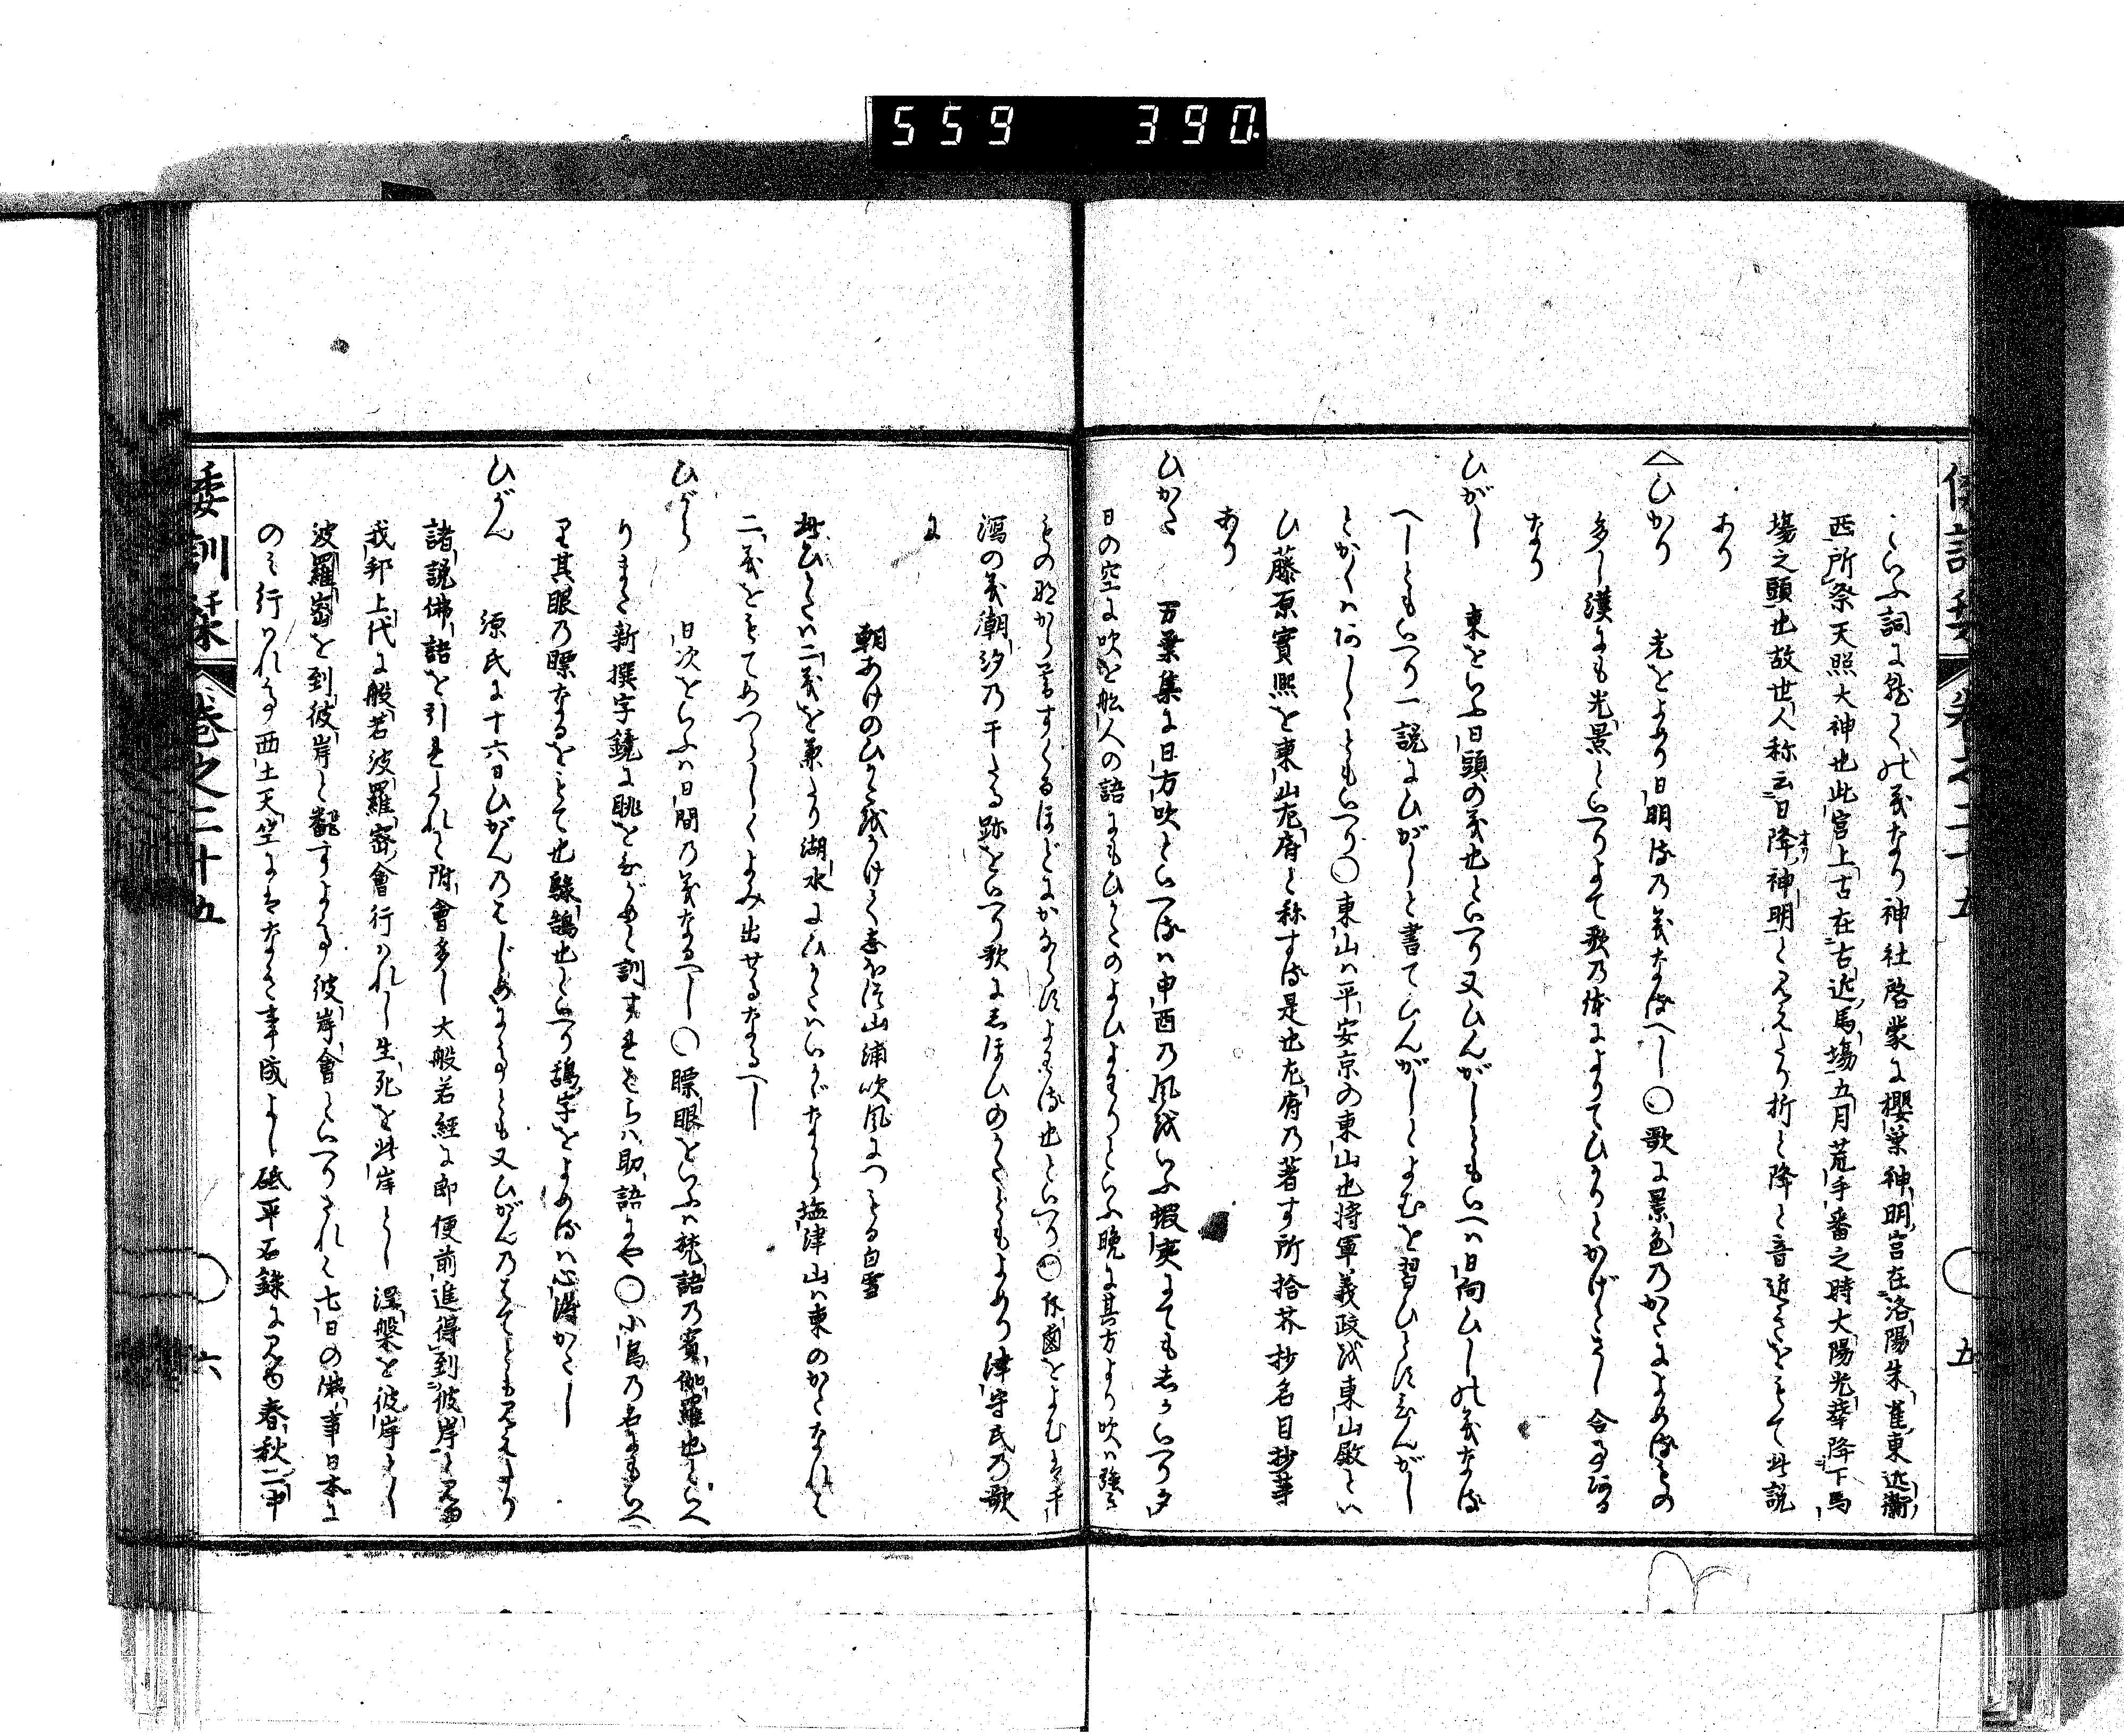 559 390
倭訓栞 巻之二十五 五
といふ詞に就ての義なり神社啓蒙に櫻葉神明宮在洛陽朱雀東近衞
西所祭天照大神也此宮上古在右近馬場五月荒手番之時大陽光華降下馬
場之頭也故世人称云日降神明と見えたり折と降と音近きをもて此説
あり
ひかり 光をよめり日明るの義なるへし○歌に景色のかたによめるもの
多し漢にも光景といへりよて歌の体によりてひかりとかげとさし合る有る
なり
ひがし 東をいふ日頭の義也といへり又ひんがしともいへは日向ひしの義なる
へしともいへり一説にひがしと書てひんがしとよむを習ひとす
とかくは あらしともいへり○東山は平安京の東山也将軍義政を東山殿とい
ひ藤原實煕を東山左府と称する是也左府の著す所拾芥抄名目抄等
あり
ひかた 万葉集に日方吹といへるは申酉の風をいふ蝦夷にても志かいへり夕
日の空に吹を舩人の語にもひかたのよひよわりといふ晩に其方より吹は強き
ものながら寄するほどにかならすよわる也といへり○斥鹵をよむは干
潟の義潮汐の干たる跡をいへり歌にしほひのかたともよめり津守氏の歌
に
朝あけのひかたをかけてしほつ山浦吹風につもる白雪
此ひかたは二義を兼たり湖水にひかたはいかゞなから塩津山は東のかたなれは
二義をもてめつらしくよみ出せるなるへし
ひがら 日次をいふは日間の義なるへし○瞟眼をいふは梵語の賓伽羅也といへ
りまた新撰字鏡に眺をながめと訓すれはらは助語にや○小鳥の名にもいへ
り其眼の瞟なるをもて也騐鵠也といへり鵠字をよめるは心得かたし
ひがん 源氏に十六日ひがんのはじめにてとも又ひがんのはてとも見えたり
諸説佛語を引まじへれと附會多し大般若経に即便前進得到彼岸と見ゆ
我邦上代に般若波羅密會行はれし生死を此岸とし涅槃を彼岸とし
波羅密を到彼岸と翻すよて彼岸會といへりされと七日の佛事日本に
のみ行はれて西土天竺にはなき事成よし砥平石録に見ゆ春秋二中
倭訓栞 巻之二十五 六